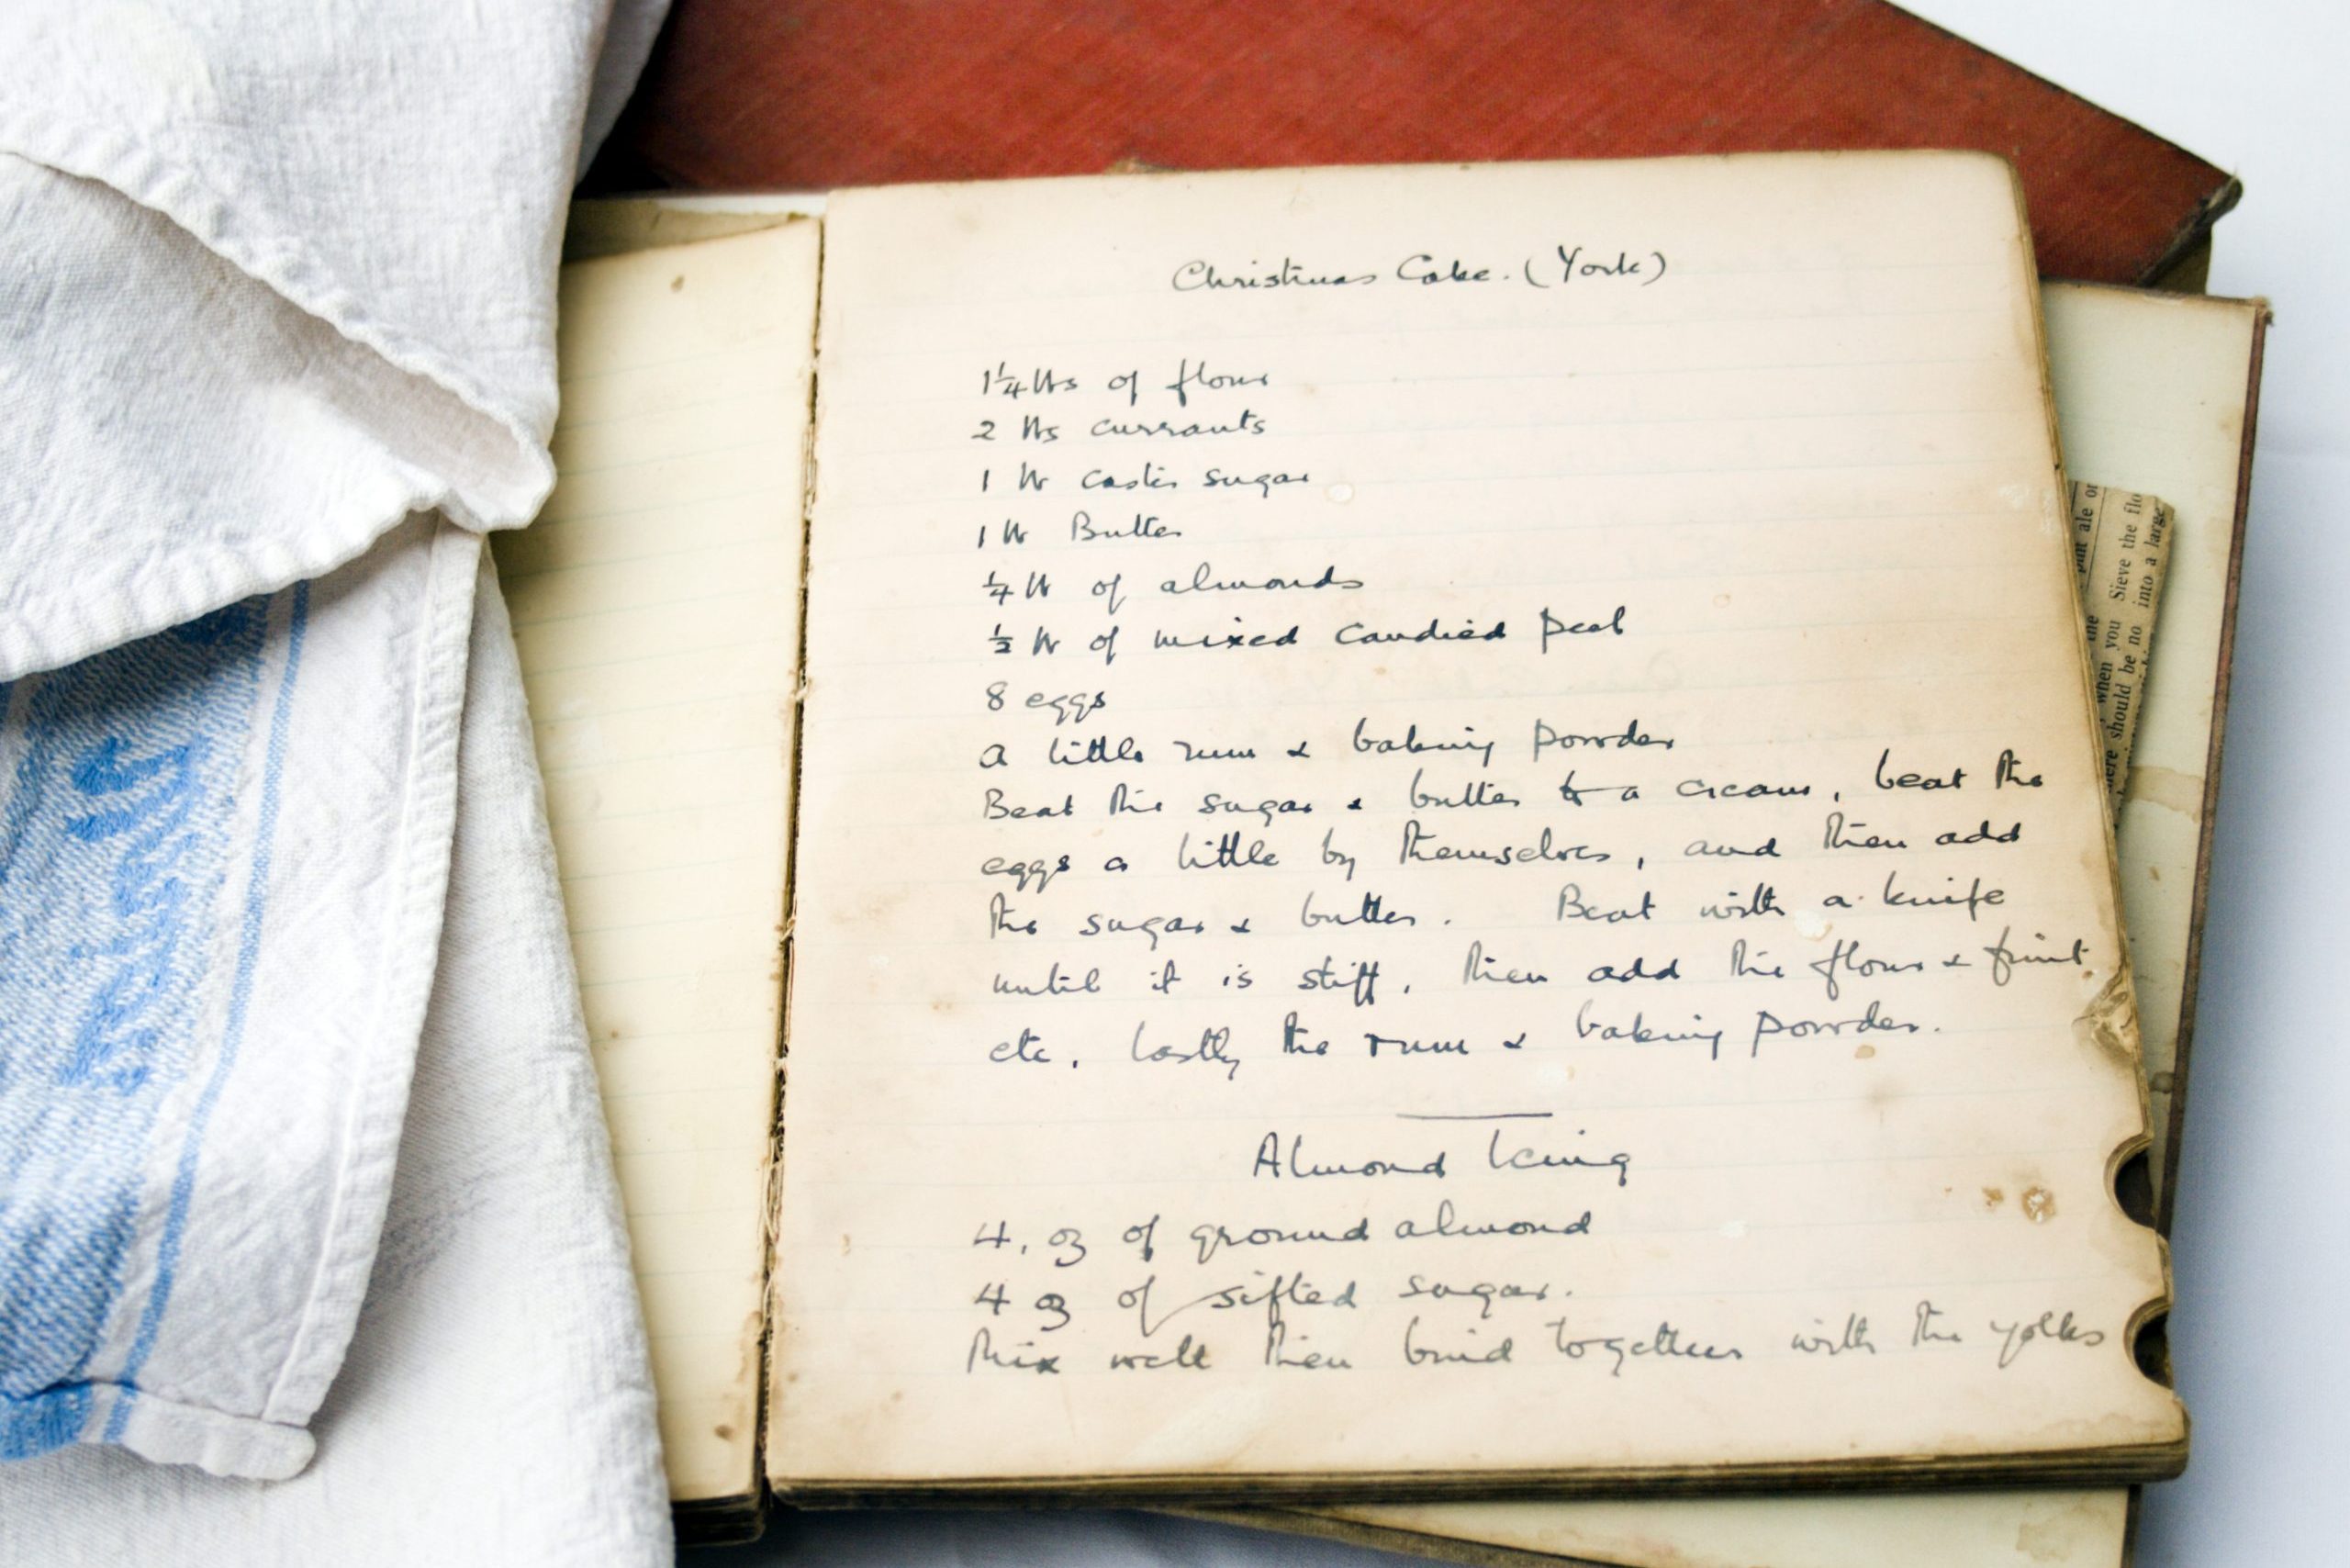 Christmas Cake. (York)
1¼ lbs of flour
2 lbs currants
1 lb castor sugar
1 lb Butter
¼ lb of almonds
½ lb of mixed candied peel
8 eggs
A little rum & baking powder
Beat the sugar & butter to a cream, beat the
eggs a little by themselves, and then add
the sugar & butter. Beat with a knife
until it is stiff, then add the flour & fruit
etc, lastly the rum & baking powder.
Almond Icing
4. oz of ground almond
4 oz of sifted sugar.
Mix well then bind together with the yolks
pint ale or
the
when you Sieve the flo
ere should be no into a large